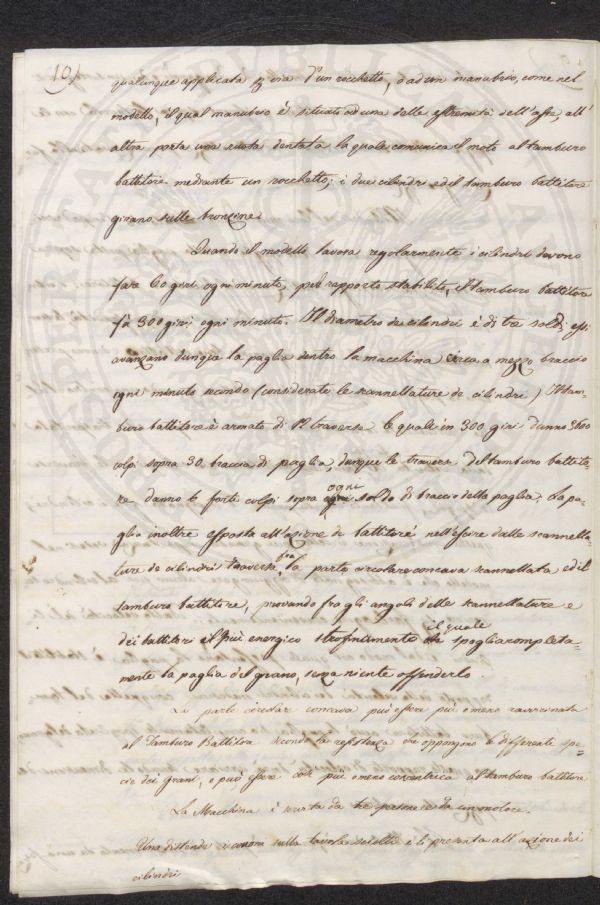 10/
qualunque applicata p via d'un rocchetto, o ad un manubrio, come nel
modello, il qual manubrio è situato ad una delle estremità dell'asse, all'
altra porta una ruota dentata la quale comunica il moto al tamburo
battitore mediante un rocchetto; i due cilindri ed il tamburo battitore
girano sulle bronzine.
Quando il modello lavora regolarmente i cilindri devono
fare 60 giri ogni minuto, pel rapporto stabilito, il tamburo battitore
fà 300 giri ogni minuto. Il diametro de cilindri è di tre soldi, essi
avanzano dunque la paglia dentro la macchina circa a mezzo braccio
ogni minuto secondo (considerate le scannellature de cilindri) Il tam-
buro battitore è armato di 12 traverse le quali in 300 giri danno 3600
colpi sopra 30 braccia di paglia, dunque le traverse del tamburo battito-
re danno 6 forti colpi sopra ogni soldo di braccio della paglia. La pa-
glia inoltre esposta all'azione di battitore nell'essere dalle scannella-
ture de cilindri traversa fra la parte circolare concava scannellata ed il
tamburo battitore, provando fra gli angoli delle scannellature e
dei battitori il più energico strofinamento il quale spoglia completa-
mente la paglia del grano, senza niente offenderlo.
La parte circolar concava può essere più o meno ravvicinata
al Tamburo Battitore secondo la resistenza che oppongono le differenti spe-
cie dei grani, e può essere così più o meno concentrica al tamburo battitore
La Macchina è servita da tre persone e da un motore.
Una distende i covoni sulla tavola e li presenta all'azione dei
cilindri